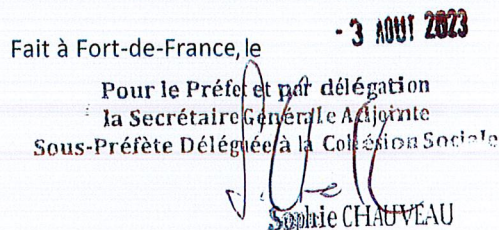 Fait à Fort-de-France, le - 3 AOUT 2023
Pour le Préfet et par délégation
la Secrétaire Générale Adjointe
Sous-Préfète Déléguée à la Cohésion Sociale
Sophie CHAUVEAU